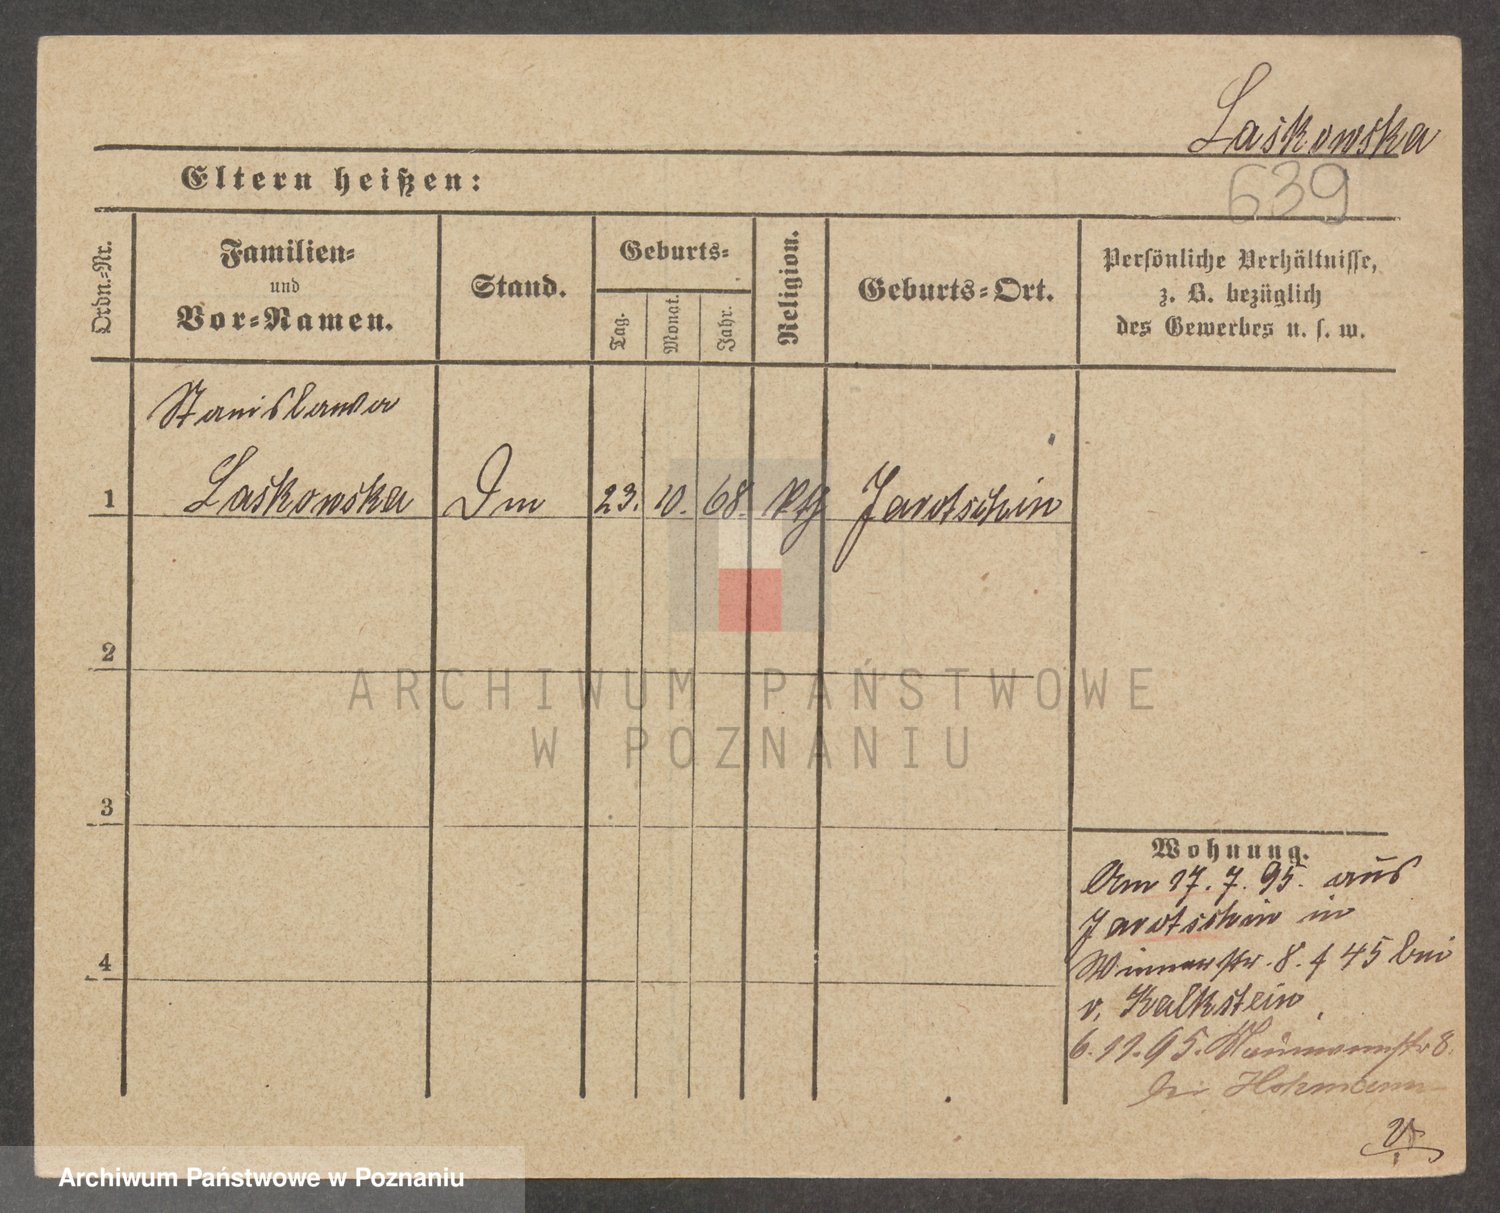 Laskowska
639
Eltern heißen:
Ordn.-Nr.
Familien-
und
Vor-Namen.
Stand.
Geburts-
Tag.
Monat.
Jahr.
Religion.
Geburts-Ort.
Persönliche Verhältnisse,
z. B. bezüglich
des Gewerbes u. s. w.
Stanislawa
1 Laskowska 23. 10. 68. kth Jarotschin
2
3
4
Wohnung.
Am 17. 7. 95. aus
Jarotschin in
8. 45 bei
v. Kalkstein
6. 11. 95. Naumannstr 8.
bei Hohmann
ARCHIWUM PAŃSTWOWE
W POZNANIU
Archiwum Państwowe w Poznaniu